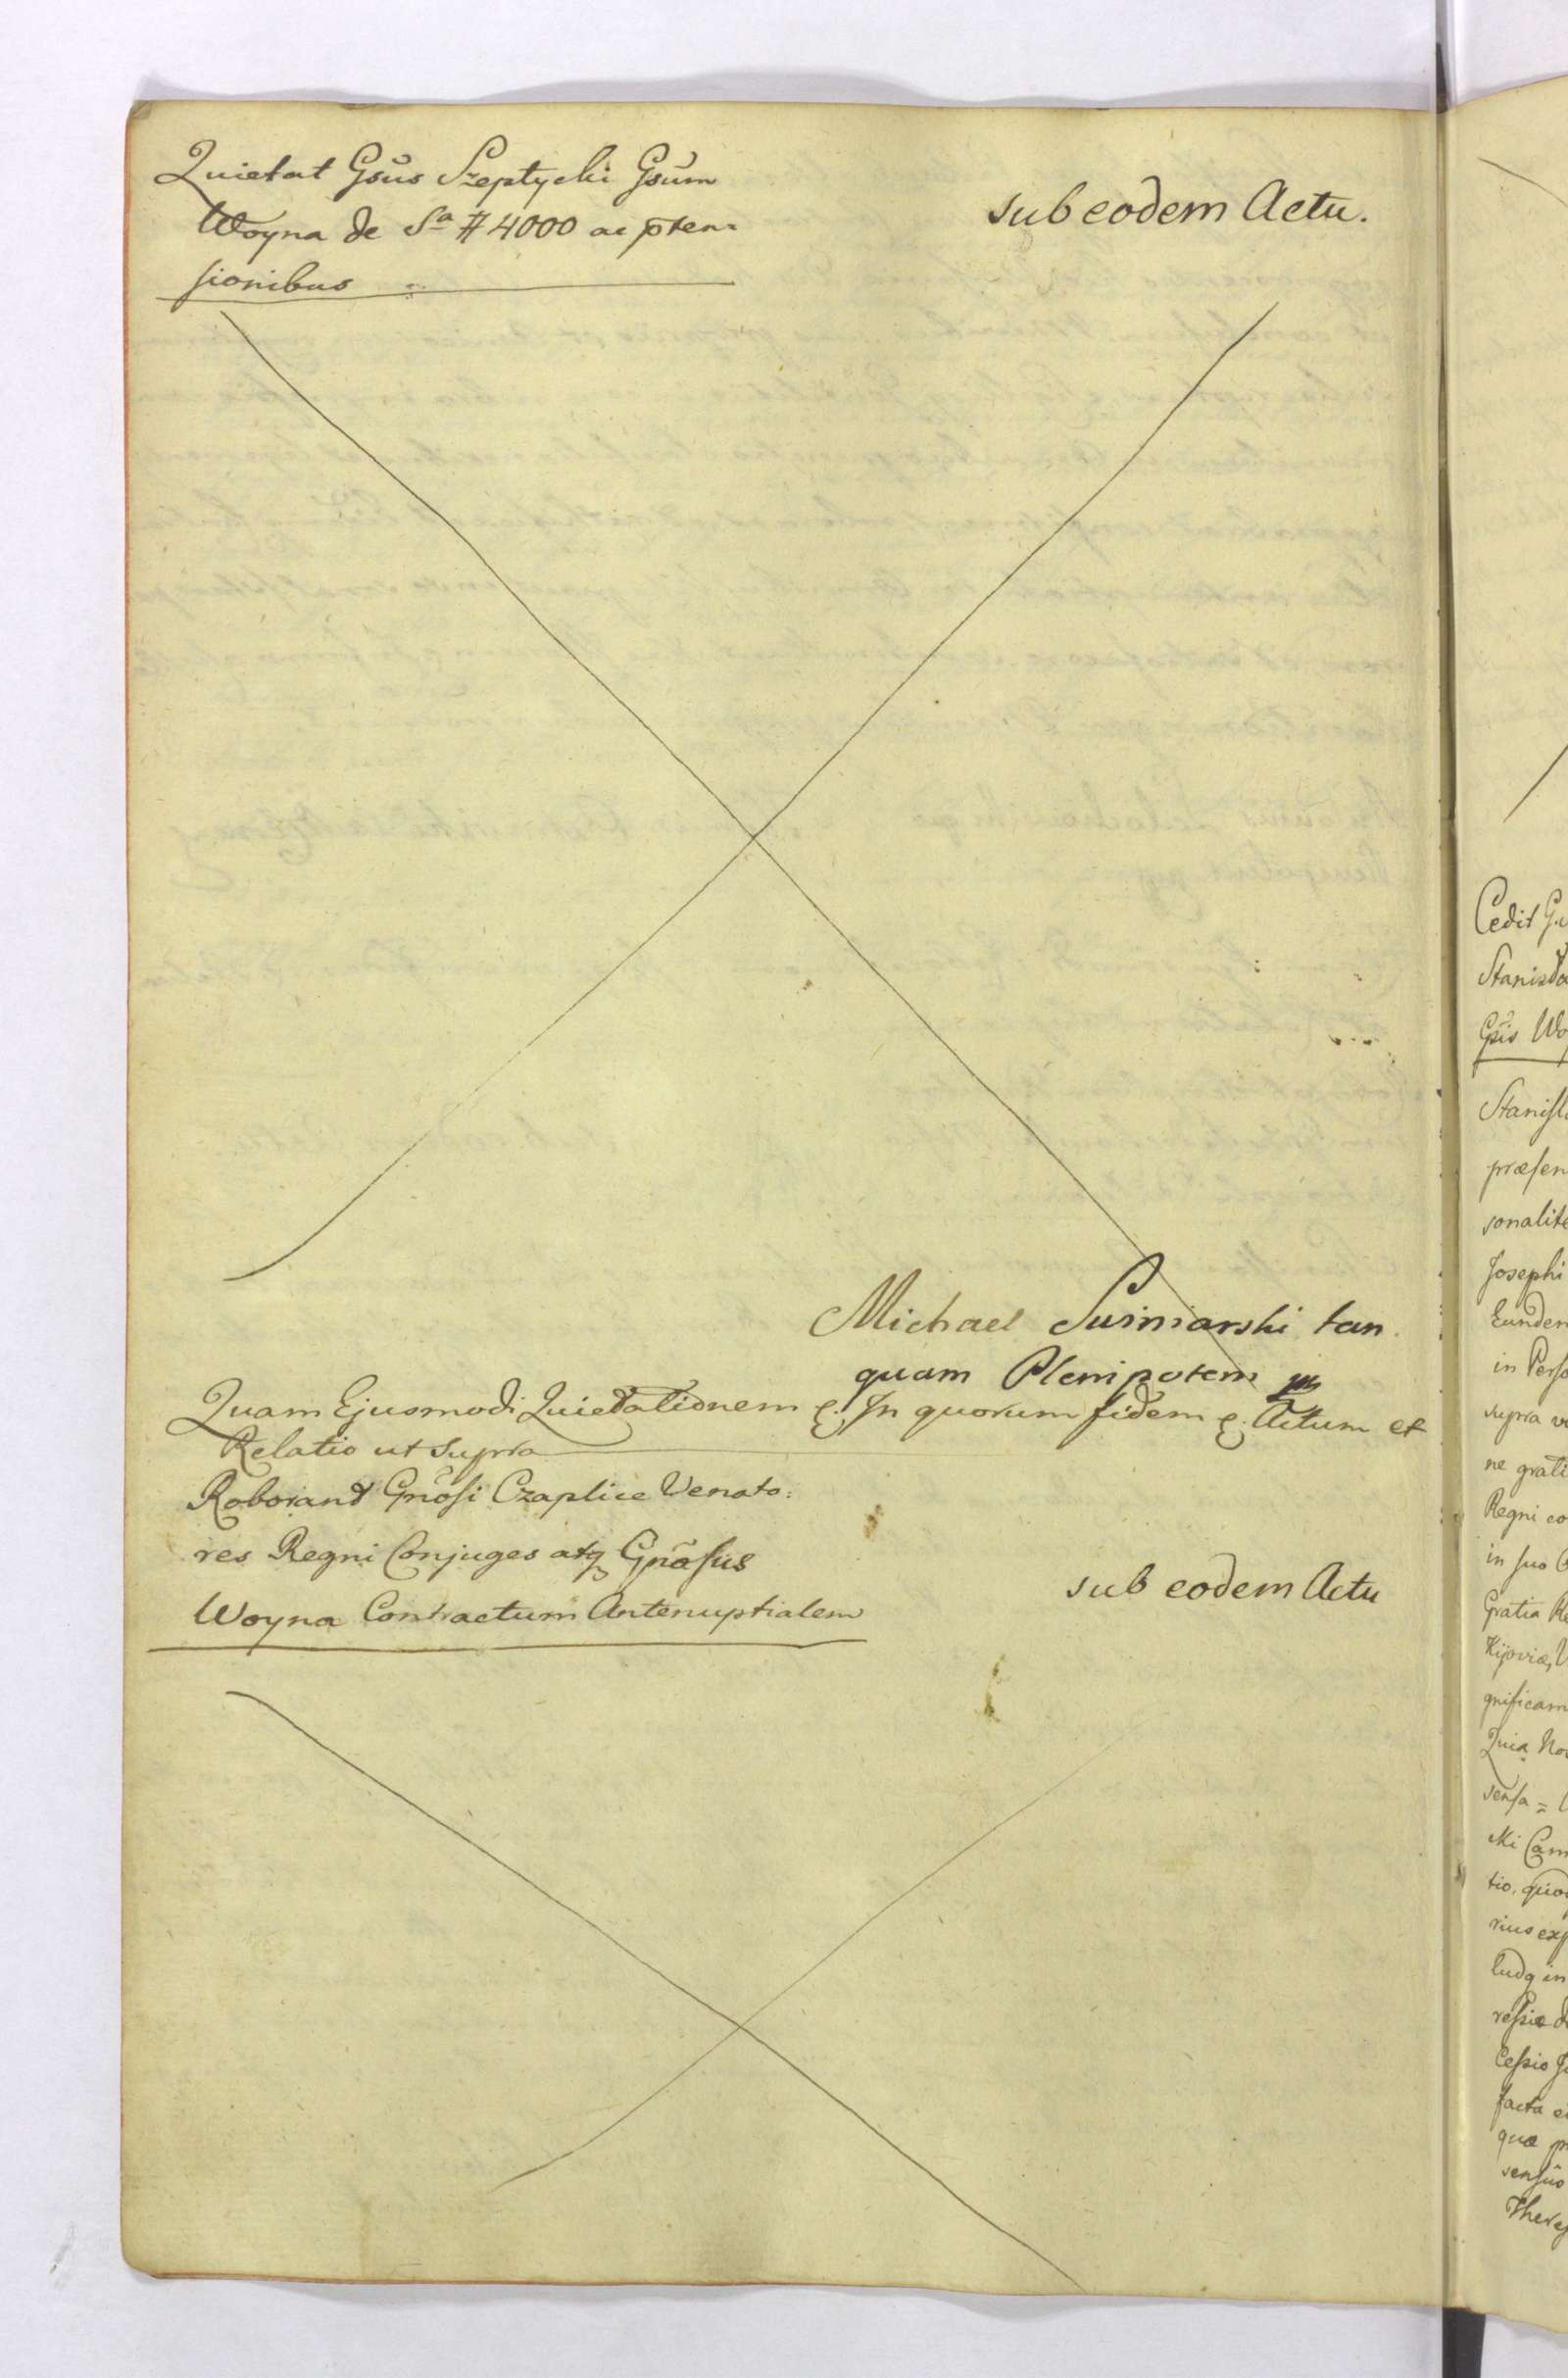 Quietat Gsus Szeptycki Gsum
Woyna de Sa # 4000 ac pten=
sionibus
sub eodem Actu.
Michael Suiniarski tan
quam Plenipotens mp
Quam Ejusmodi Quietationem &. In quorum fidem &. Actum et
Relatio ut supra
Roborant Gnosi Czaplice Venato:
res Regni Conjuges atq Gnosus
Woyna Contractum Antenuptialem
sub eodem Actu
Cedit
Stanisla
Gsis Wo
Stanisla
præsen
sonalite
Josephi
Eundem
in Perso
supra
ne grati
Regni co
in suo
Gratia
Kijoviæ,
gnificam
Quia No
sensa =
cki Cam
tio, quo
rius exp
ludq in
ressie d
Cessio
facta
quæ
sensus
Theres